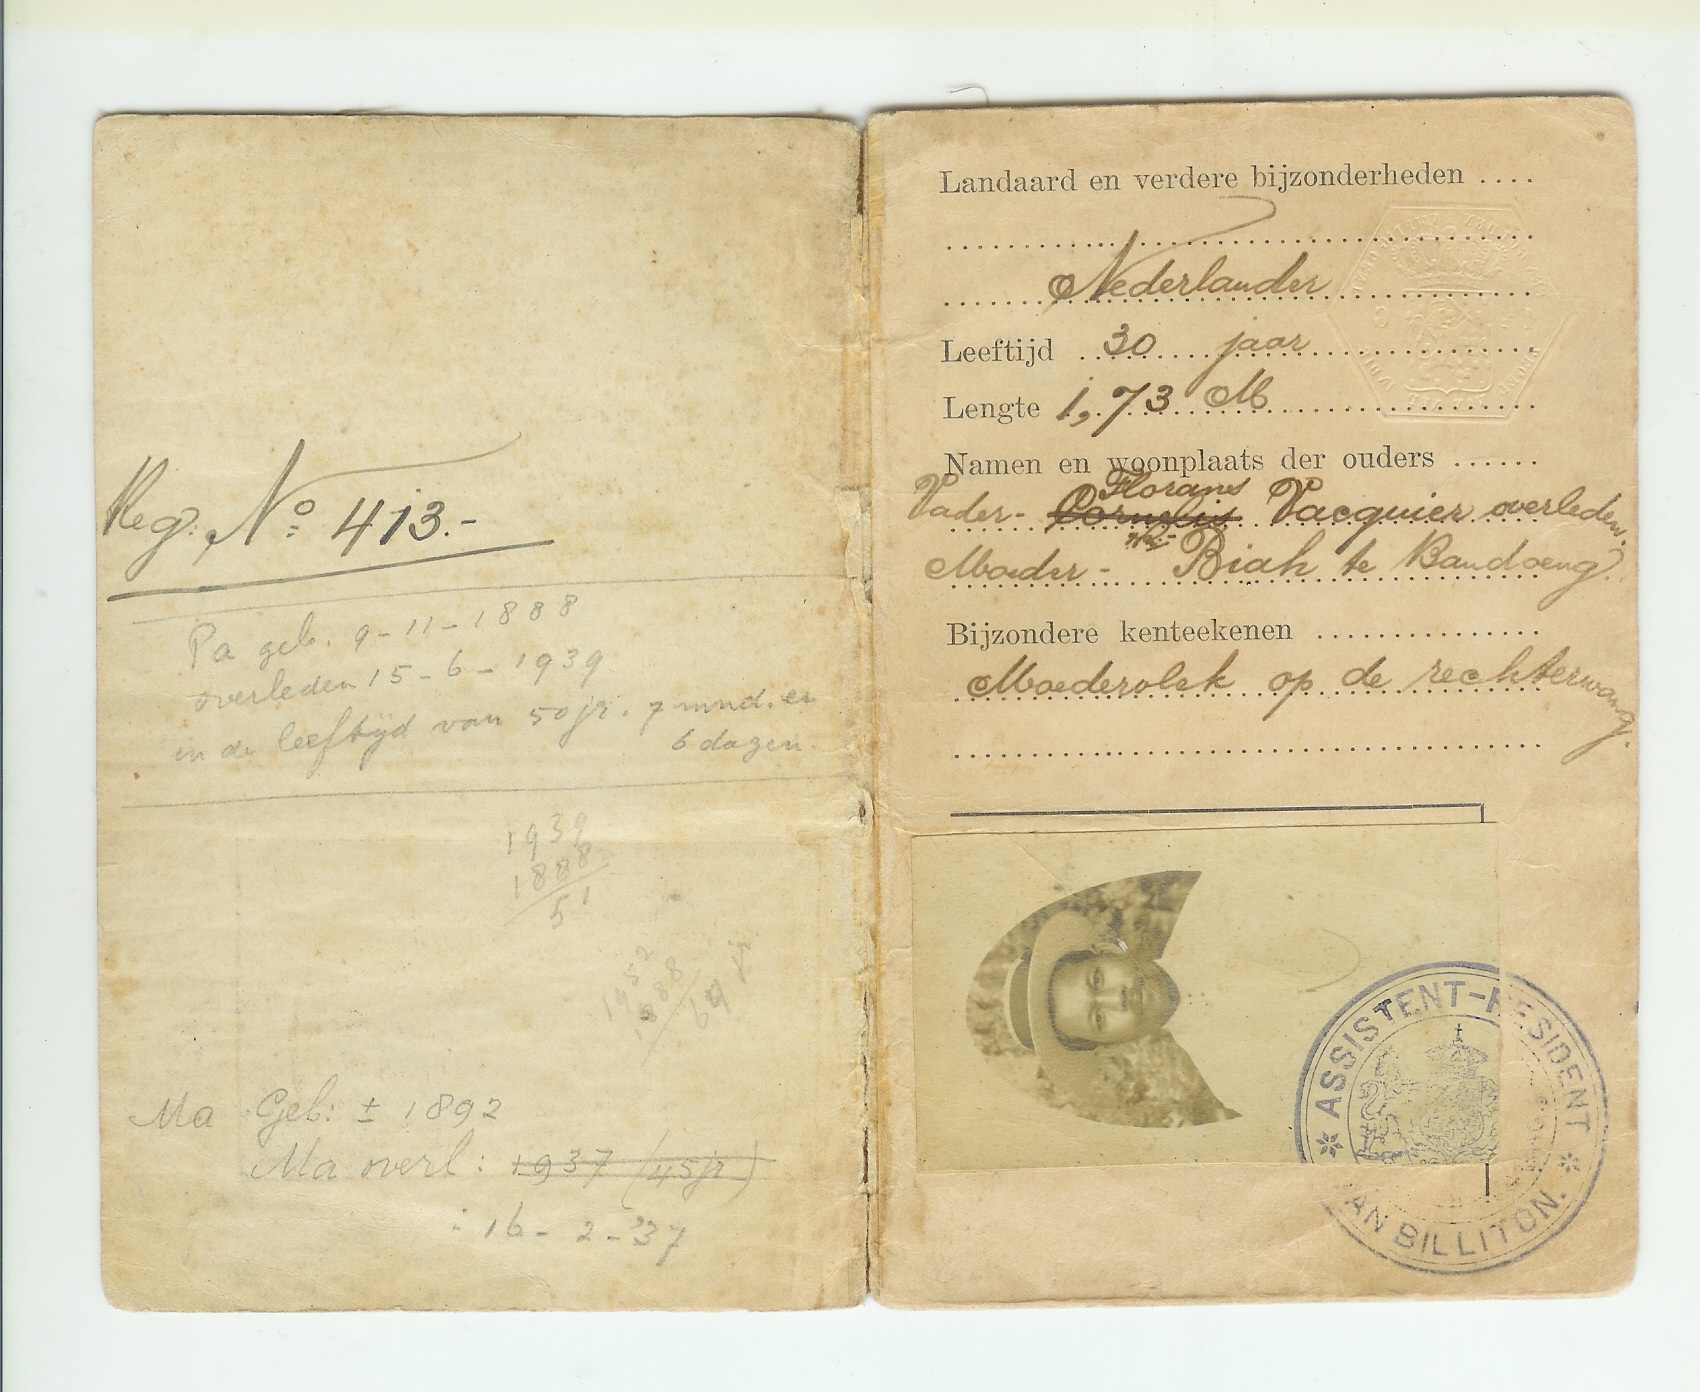 Reg. No. 413.-
Pa geb. 9-11-1888
overleden 15-6-1939
in de leeftijd van 50 jr. 7 mnd. en
6 dagen.
1939
1888
51
1952
1888
64
Ma Geb: ± 1892
Ma overl: 1937 (45 jr)
: 16-2-'37
Landaard en verdere bijzonderheden ....
Nederlander
Leeftijd 30 jaar
Lengte 1,73 M
Namen en woonplaats der ouders ......
Florans
Vader- Cornelis Vacquier overleden.
Moeder- Biah te Bandoeng.
Bijzondere kenteekenen ...............
Moedervlek op de rechterwang.
ASSISTENT-RESIDENT
VAN BILLITON.